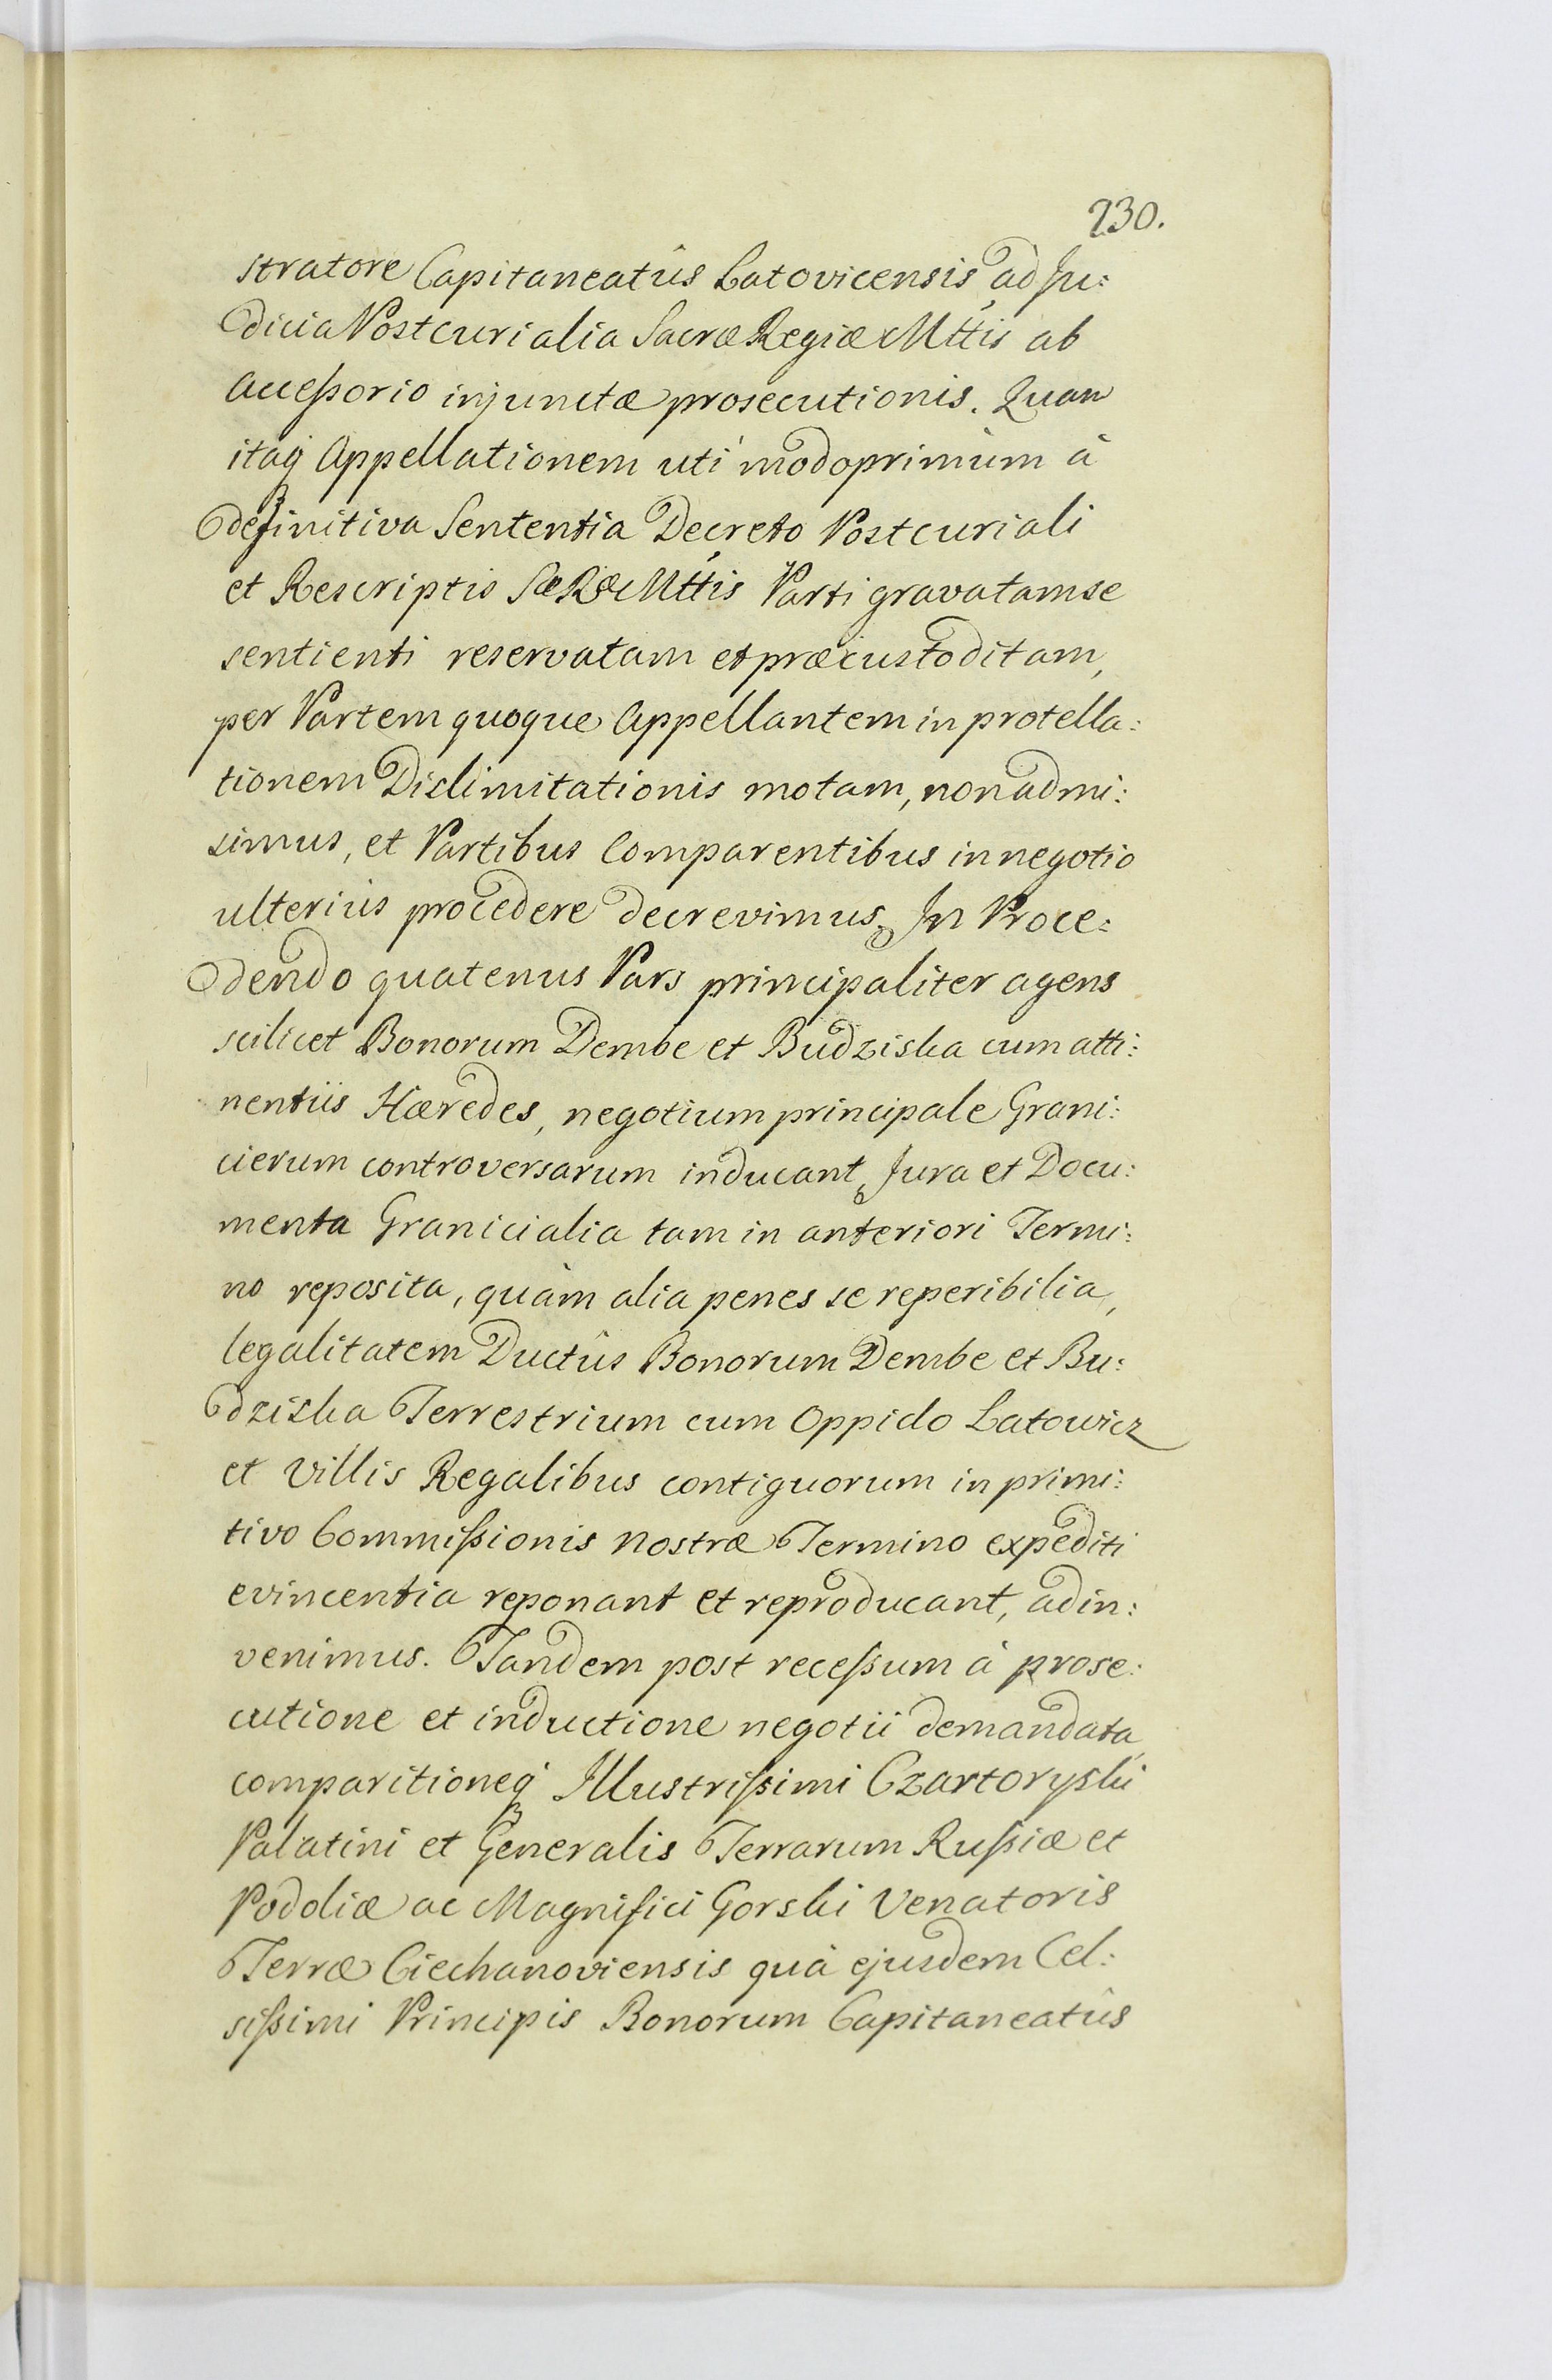 230.
stratore Capitaneatûs Latovicensis ad Ju:
dicia Postcurialia Sacræ Regiæ Mttis ab
Accessorio injunctæ prosecutionis. Quam
itaq́ Appellationem uti modoprimùm à
definitiva Sententia Decreto Postcuriali
et Rescriptis SæRæMttis Parti gravatam se
sentienti reservatam et præcustoditam,
per Partem quoque Appellantem in protella:
tionem Dislimitationis motam, non admi:
simus, et Partibus Comparentibus in negotio
ulteriùs procedere decrevimus. In Proce:
dendo quatenus Pars principaliter agens
scilicet Bonorum Dembe et Budziska cum atti:
nentiis Hæredes, negotium principale Grani:
cierum controversarum inducant, Jura et Docu:
menta Granicialia tam in anteriori Termi:
no reposita, quàm alia penes se reperibilia,
legalitatem Ductûs Bonorum Dembe et Bu:
dziska Terrestrium cum Oppido Latowicz
et Villis Regalibus contiguorum in primi:
tivo Commissionis nostræ Termino expediti
evincentia reponant et reproducant, adin:
venimus. Tandem post recessum à prose:
cutione et inductione negotii demandata,
comparitioneq́ Illustrissimi Czartoryski
Palatini et Generalis Terrarum Russiæ et
Podoliæ ac Magnifici Gorski Venatoris
Terræ Ciechanoviensis quà ejusdem Cel:
sissimi Principis Bonorum Capitaneatûs